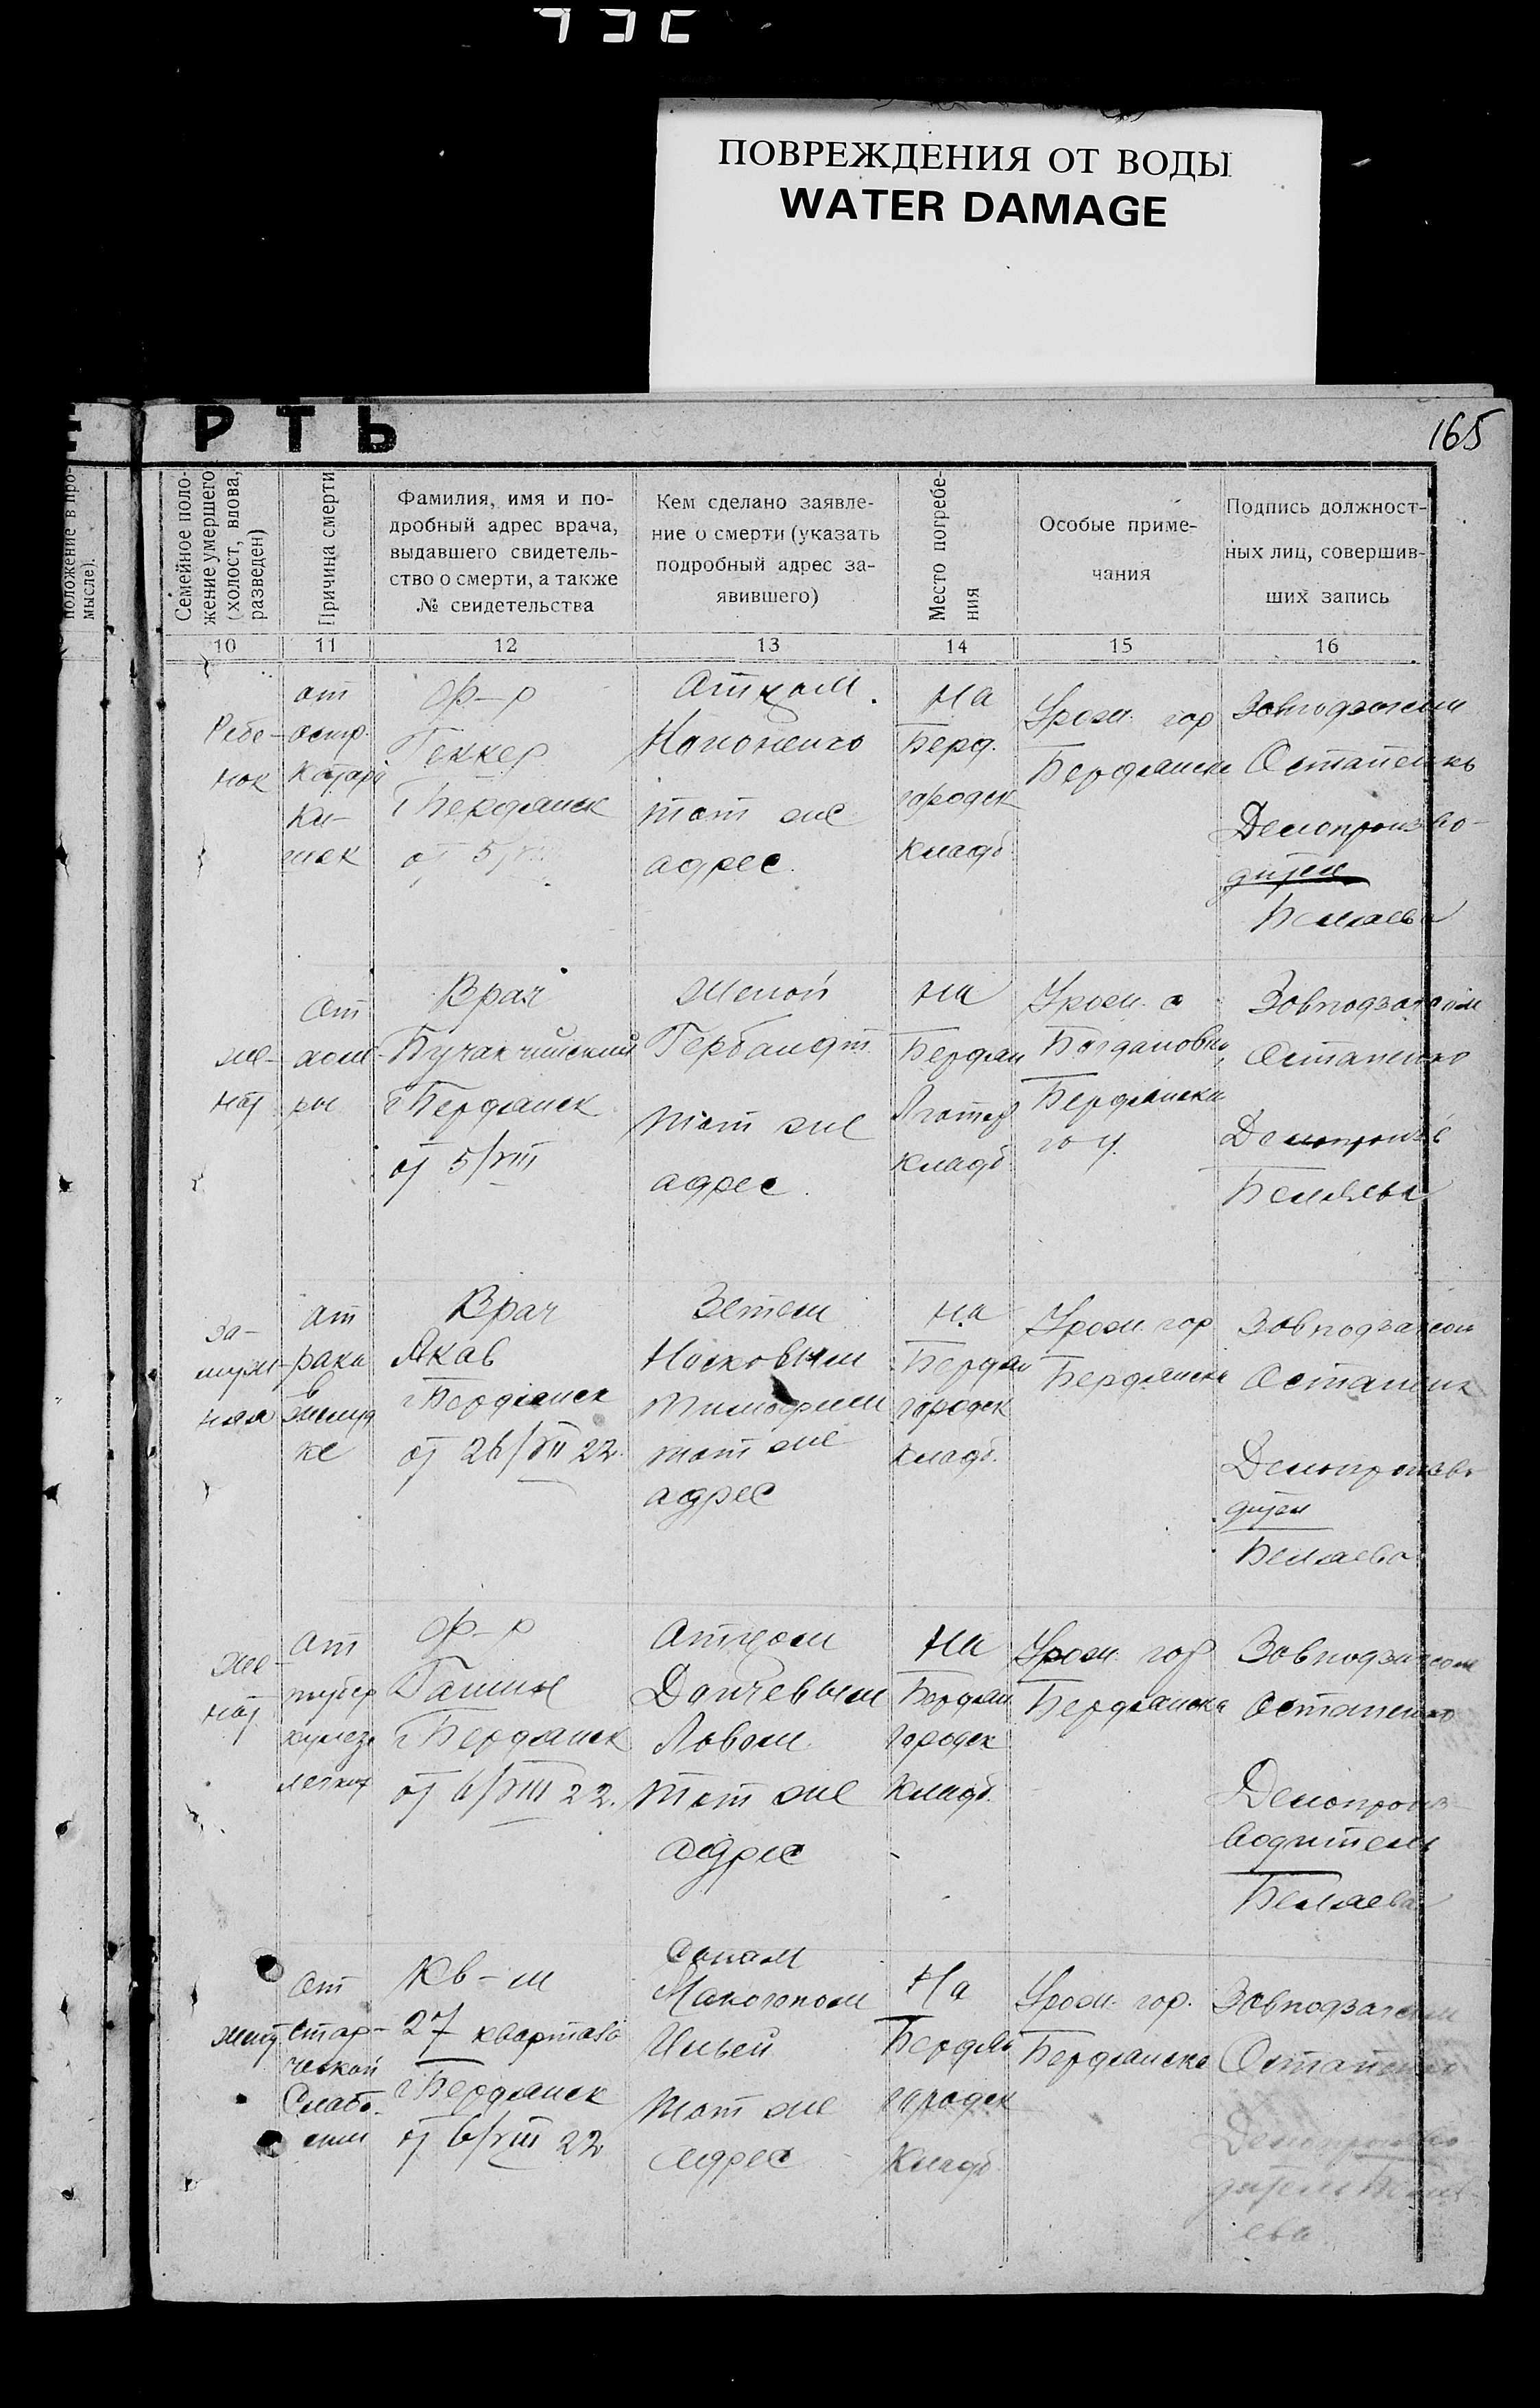 ПОВРЕЖДЕНИЯ ОТ ВОДЫ
WATER DAMAGE
165
Р Т Ь
положение в про-
мысле).
Семейное поло-
жение умершего
(холост, вдова,
разведен)
Причина смерти
Фамилия, имя и по-
дробный адрес врача,
выдавшего свидетель-
ство о смерти, а также
№ свидетельства
Кем сделано заявле-
ние о смерти (указать
подробный адрес за-
явившего)
Место погребе-
ния
Особые приме-
чания
Подпись должност-
ных лиц, совершив-
ших запись
10
11
12
13
14
15
16
Ребе-
нок
от
остр.
катара
ки-
шек
Ф-р
Геккер
г Бердянск
от 5/VIII
Отцом
Кононенко
тот же
адрес.
На
Берд.
городск
кладб.
Урож. гор
Бердянска
Завподзагсом
Остапенко
Делопроизво-
дител
Беляева
же-
нат
От
холе-
ры
Врач
Бучакчийский
г Бердянск
от 5/VIII
Женой
Гербандт
тот же
адрес.
На
Бердян
Лютер
кладб.
Урож. с
Богдановки
Бердянска
го у.
Завподзагсом
Остапенко
Делопроизв
Беляева
За-
муж-
няя
от
рака
в
желуд
ке
Врач
Яков
г Бердянск
от 26/VII 22.
Зятем
Носковым
Тимофеем
тот же
адрес
На
Бердян
городск
кладб.
Урож. гор
Бердянска
Завподзагсом
Остапенк
Делопроизво
дител
Беляева
же-
нат
от
тубер
кулеза
легких
Ф-р
г Бердянск
от 6/VIII 22.
Отцом
Дончевым
Ловом
Тот же
адрес
На
Бердян
городск
кладб.
Урож. гор
Бердянска
Завподзагсом
Остапенко
Делопроиз-
водитель
Беляева
женат
От
стар-
ческой
слабо-
сти
Кв-м
27 квартала
г Бердянск
от 6/VIII 22
Сыном
Макогоном
Ильей
Тот же
адрес
На
Бердян
городск
Кладб.
Урож. гор.
Бердянска
Завподзагсом
Остапенко
Делопроизво
дитель Беля-
ева